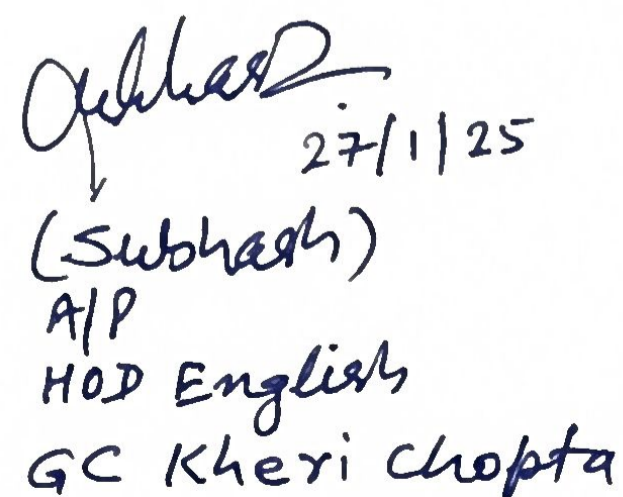 Subhash
27/1/25
(Subhash)
A/P
HOD English
GC Kheri Chopta